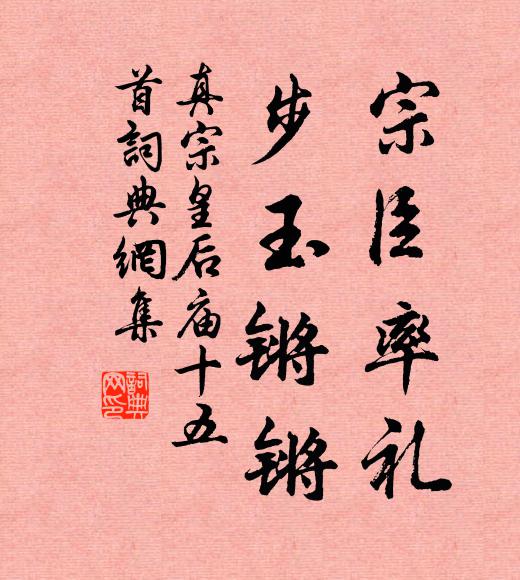 宗臣率礼
步玉锵锵
真宗皇后庙十五
首詞典網集
詞典
网印